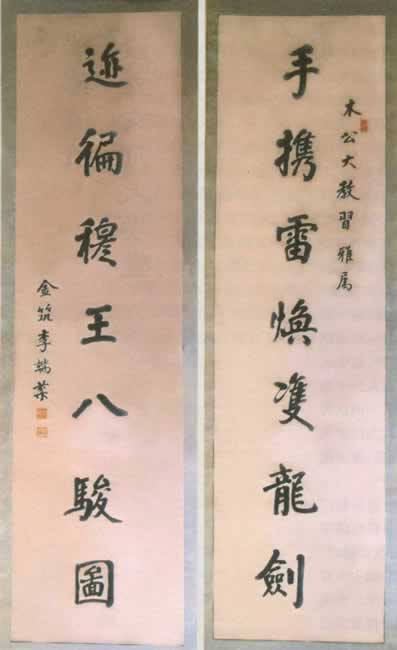 木公大教習雅属
手携雷煥雙龍劍
迹徧穆王八駿圖
金筑李端棻